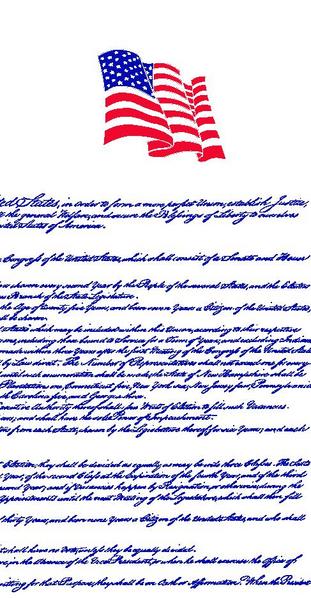 ted States, in order to form a more perfect Union, establish Justice,
the general Welfare, and secure the Blessings of Liberty to ourselves
United States of America.
Congress of the United States, which shall consist of a Senate and House
chosen every second Year by the People of the several States, and the Electors
Branch of the State Legislature.
the Age of twenty five Years, and been seven Years a Citizen of the United States,
shall be chosen.
States which may be included within this Union, according to their respective
including those bound to Service for a Term of Years, and excluding Indians
made within three Years after the first Meeting of the Congress of the United States
by Law direct. The Number of Representatives shall not exceed one
until such enumeration shall be made, the State of New Hampshire shall
Plantations one, Connecticut five, New York six, New Jersey four, Pennsylvania
Carolina five, and Georgia three.
Executive Authority thereof shall issue Writs of Election to fill such Vacancies.
shall have the sole Power of Impeachment.
from each State, chosen by the Legislature thereof for six Years; and each
Election, they shall be divided as equally as may be into three Classes. The Seats
Year, of the second Class at the Expiration of the fourth Year, and of the third
second Year; and if Vacancies happen by Resignation, or otherwise, during the
Appointments until the next Meeting of the Legislature, which shall then fill
thirty Years, and been nine Years a Citizen of the United States, and who shall
shall have no Vote, unless they be equally divided.
in the Absence of the Vice President, or when he shall exercise the Office of
sitting for that Purpose, they shall be on Oath or Affirmation. When the President